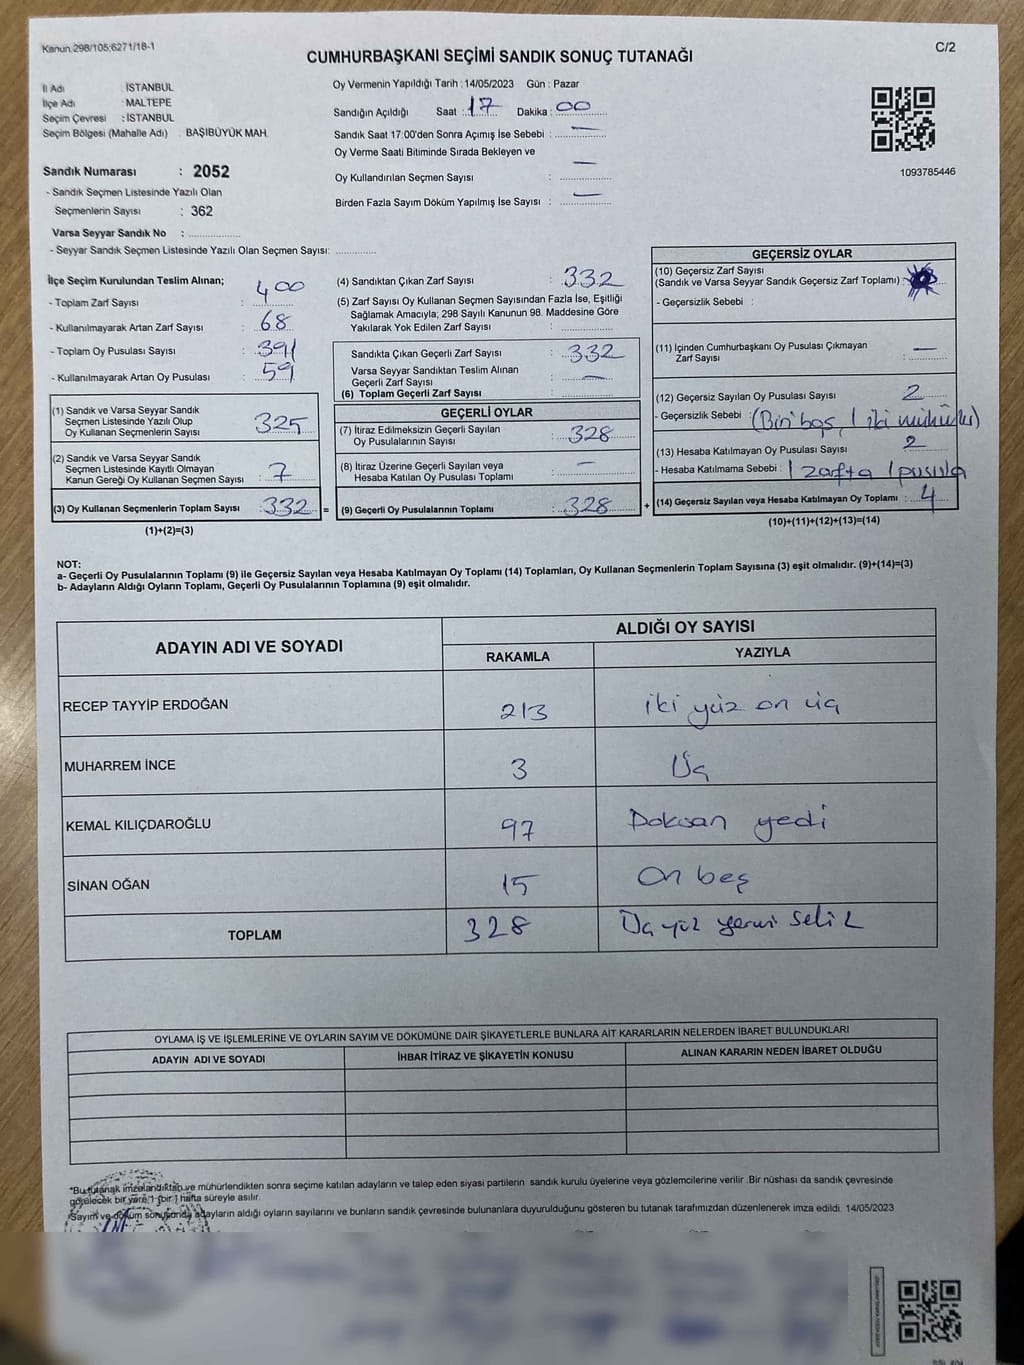 Kanun:298/105;6271/18-1
C/2
CUMHURBAŞKANI SEÇİMİ SANDIK SONUÇ TUTANAĞI
İl Adı : İSTANBUL
İlçe Adı : MALTEPE
Seçim Çevresi : İSTANBUL
Seçim Bölgesi (Mahalle Adı) : BAŞIBÜYÜK MAH.
Sandık Numarası : 2052
- Sandık Seçmen Listesinde Yazılı Olan
Seçmenlerin Sayısı : 362
Varsa Seyyar Sandık No : ..................
- Seyyar Sandık Seçmen Listesinde Yazılı Olan Seçmen Sayısı: ..............
Oy Vermenin Yapıldığı Tarih : 14/05/2023 Gün : Pazar
Sandığın Açıldığı Saat : 17 Dakika : 00
Sandık Saat 17:00'den Sonra Açımış İse Sebebi : —
Oy Verme Saati Bitiminde Sırada Bekleyen ve
Oy Kullandırılan Seçmen Sayısı : —
Birden Fazla Sayım Döküm Yapılmış İse Sayısı : —
1093785446
İlçe Seçim Kurulundan Teslim Alınan;
- Toplam Zarf Sayısı : 400
- Kullanılmayarak Artan Zarf Sayısı : 68
- Toplam Oy Pusulası Sayısı : 391
- Kullanılmayarak Artan Oy Pusulası : 59
(1) Sandık ve Varsa Seyyar Sandık
Seçmen Listesinde Yazılı Olup
Oy Kullanan Seçmenlerin Sayısı : 325
(2) Sandık ve Varsa Seyyar Sandık
Seçmen Listesinde Kayıtlı Olmayan
Kanun Gereği Oy Kullanan Seçmen Sayısı : 7
(3) Oy Kullanan Seçmenlerin Toplam Sayısı : 332 =
(1)+(2)=(3)
(4) Sandıktan Çıkan Zarf Sayısı : 332
(5) Zarf Sayısı Oy Kullanan Seçmen Sayısından Fazla İse, Eşitliği
Sağlamak Amacıyla; 298 Sayılı Kanunun 98. Maddesine Göre
Yakılarak Yok Edilen Zarf Sayısı : ..................
Sandıkta Çıkan Geçerli Zarf Sayısı : 332
Varsa Seyyar Sandıktan Teslim Alınan
Geçerli Zarf Sayısı : —
(6) Toplam Geçerli Zarf Sayısı : ..................
GEÇERLİ OYLAR
(7) İtiraz Edilmeksizin Geçerli Sayılan
Oy Pusulalarının Sayısı : 328
(8) İtiraz Üzerine Geçerli Sayılan veya
Hesaba Katılan Oy Pusulası Toplamı : —
(9) Geçerli Oy Pusulalarının Toplamı : 328 +
GEÇERSİZ OYLAR
(10) Geçersiz Zarf Sayısı
(Sandık ve Varsa Seyyar Sandık Geçersiz Zarf Toplamı) :
- Geçersizlik Sebebi :
(11) İçinden Cumhurbaşkanı Oy Pusulası Çıkmayan
Zarf Sayısı : —
(12) Geçersiz Sayılan Oy Pusulası Sayısı 2
- Geçersizlik Sebebi : (Biri boş, 1 iki mühürlü)
(13) Hesaba Katılmayan Oy Pusulası Sayısı 2
- Hesaba Katılmama Sebebi : 1 zarfta 1 pusula
(14) Geçersiz Sayılan veya Hesaba Katılmayan Oy Toplamı : 4
(10)+(11)+(12)+(13)=(14)
NOT:
a- Geçerli Oy Pusulalarının Toplamı (9) ile Geçersiz Sayılan veya Hesaba Katılmayan Oy Toplamı (14) Toplamları, Oy Kullanan Seçmenlerin Toplam Sayısına (3) eşit olmalıdır. (9)+(14)=(3)
b- Adayların Aldığı Oyların Toplamı, Geçerli Oy Pusulalarının Toplamına (9) eşit olmalıdır.
ADAYIN ADI VE SOYADI ALDIĞI OY SAYISI
RAKAMLA YAZIYLA
RECEP TAYYİP ERDOĞAN 213 iki yüz on üç
MUHARREM İNCE 3 Üç
KEMAL KILIÇDAROĞLU 97 Doksan yedi
SİNAN OĞAN 15 On beş
TOPLAM 328 Üç yüz yirmi sekiz
OYLAMA İŞ VE İŞLEMLERİNE VE OYLARIN SAYIM VE DÖKÜMÜNE DAİR ŞİKAYETLERLE BUNLARA AİT KARARLARIN NELERDEN İBARET BULUNDUKLARI
ADAYIN ADI VE SOYADI İHBAR İTİRAZ VE ŞİKAYETİN KONUSU ALINAN KARARIN NEDEN İBARET OLDUĞU
*Bu tutanak imzalandıktan ve mühürlendikten sonra seçime katılan adayların ve talep eden siyasi partilerin sandık kurulu üyelerine veya gözlemcilerine verilir .Bir nüshası da sandık çevresinde
görülecek bir yere 1 (bir) hafta süreyle asılır.
*Sayım ve döküm sonucunda adayların aldığı oyların sayılarını ve bunların sandık çevresinde bulunanlara duyurulduğunu gösteren bu tutanak tarafımızdan düzenlenerek imza edildi. 14/05/2023